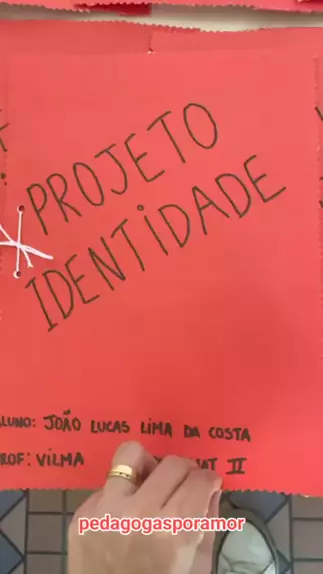 PROJETO
IDENTIDADE
LUNO: JOÃO LUCAS LIMA DA COSTA
ROF: VILMA AT II
pedagogasporamor